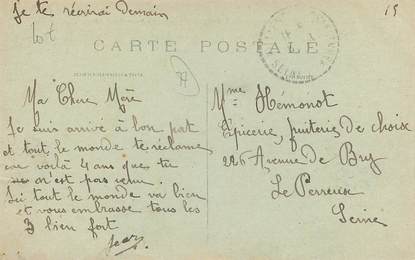 Je te récrirai Demain
tot
15
CARTE POSTALE
Ma Chere Mère
Je suis arrivé à bon port
et tout le monde te réclame
car voilà 4 ans que tu
n'est pas venu.
Ici tout le monde va bien
et vous embrasse tous les
3 bien fort
Mme Hémonot
Epicerie, fruiterie de choix
226 Avenue de Bry
Le Perreux
Seine